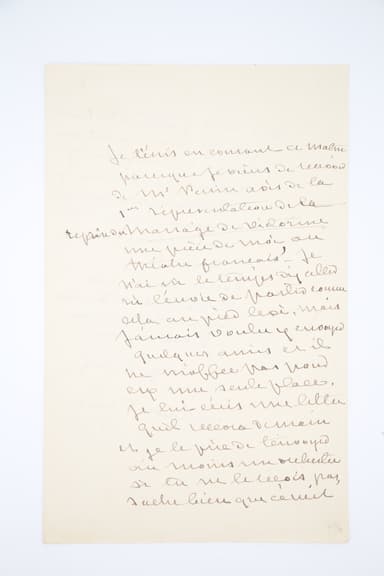 Je t'écris en courant ce matin
parce que je viens de recevoir
de Mr Perrin avis de la
1ère représentation de la
reprise du Mariage de Victorine
une pièce de moi au
théâtre français. Je
n'ai ni le temps d'y aller
ni l'envie de partir comme
cela au pied levé, mais
j'aurais voulu y envoyer
quelques amis et il
ne m'offre pas pour
eux une seule place.
Je lui écris une lettre
qu'il recevra demain
et je le prie de t'envoyer
au moins un orchestre
si tu ne le reçois pas,
sache bien que c'est